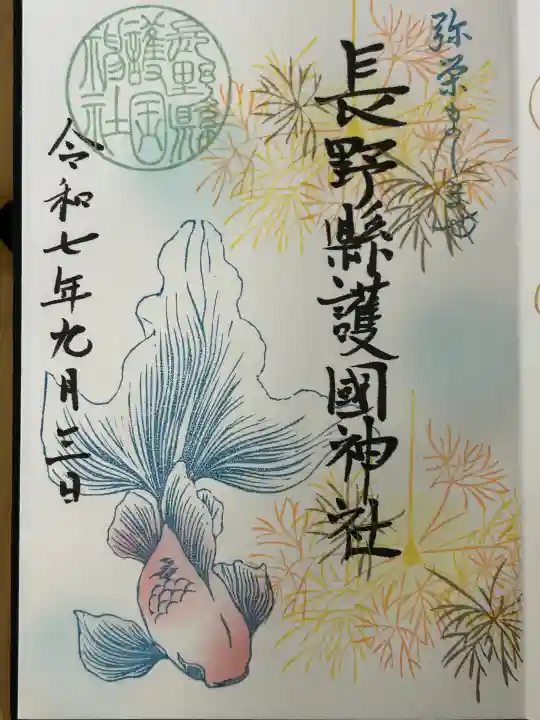 弥栄ましませ
長野縣護國神社
長野縣護國神社
令和七年九月三日